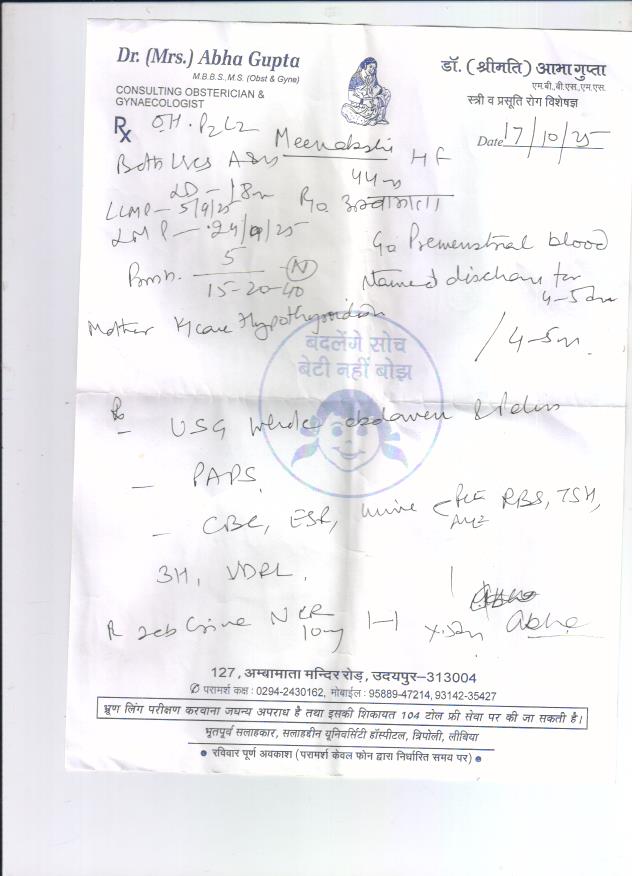 Dr. (Mrs.) Abha Gupta
M.B.B.S., M.S. (Obst & Gyne)
CONSULTING OBSTERICIAN &
GYNAECOLOGIST
डॉ. (श्रीमति) आभा गुप्ता
एम.बी.बी.एस.,एम.एस.
स्त्री व प्रसूति रोग विशेषज्ञ
Rx OH. P2L2
Date 17/10/25
Meenakshi HF
Both LSCS
44
LD - 18
LLMP - 5/9/25 R/o अम्बामाता
LMP - 24/9/25
Premenstrual blood
5
15-20-40 N
stained discharge for
4-5
Mother Hypothyroidism
/ 4-5
बदलेंगे सोच
बेटी नहीं बोझ
USG whole abdomen & Pelvis
- PAPS
- CBC, ESR, Urine RBS, TSH,
VDRL.
R Tab N CR
10mg Abha
127, अम्बामाता मन्दिर रोड़, उदयपुर–313004
परामर्श कक्ष : 0294-2430162, मोबाईल : 95889-47214, 93142-35427
भ्रूण लिंग परीक्षण करवाना जघन्य अपराध है तथा इसकी शिकायत 104 टोल फ्री सेवा पर की जा सकती है।
भूतपूर्व सलाहकार, सलाहद्दीन यूनिवर्सिटी हॉस्पीटल, त्रिपोली, लीबिया
• रविवार पूर्ण अवकाश (परामर्श केवल फोन द्वारा निर्धारित समय पर) •